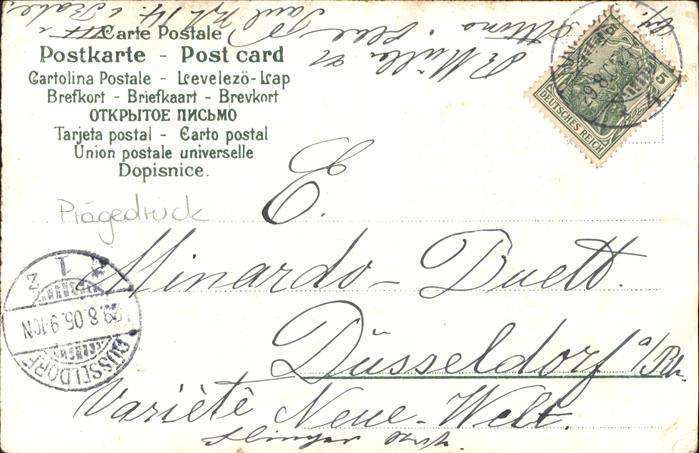 Carte Postale
Postkarte - Post card
Cartolina Postale - Levelezö-Lap
Brefkort - Briefkaart - Brevkort
ОТКРЫТОЕ ПИСЬМО
Tarjeta postal - Carto postal
Union postale universelle
Dopisnice.
5
DEUTSCHES REICH
Prägedruck
E.
Minardo-Duett.
Düsseldorf a/Rh.
Varieté Neue-Welt.
29.8.05.9-10N
DÜSSELDORF